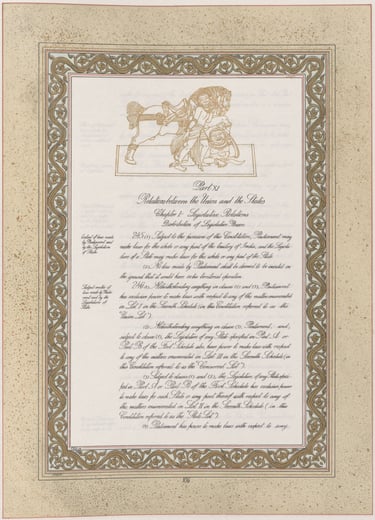 Part XI
Relations between the Union and the States
Chapter I.- Legislative Relations
Distribution of Legislative Powers
Extent of laws made
by Parliament and
by the Legislatures
of States.
245. (1) Subject to the provisions of this Constitution, Parliament may
make laws for the whole or any part of the territory of India, and the Legisla-
ture of a State may make laws for the whole or any part of the State.
(2) No law made by Parliament shall be deemed to be invalid on
the ground that it would have extra-territorial operation.
Subject matter of
laws made by Parlia-
ment and by the
Legislatures of
States.
246. (1) Notwithstanding anything in clauses (2) and (3), Parliament
has exclusive power to make laws with respect to any of the matters enumerated
in List I in the Seventh Schedule (in this Constitution referred to as the
"Union List").
(2) Notwithstanding anything in clause (3), Parliament, and,
subject to clause (1), the Legislature of any State specified in Part A or
Part B of the First Schedule also, have power to make laws with respect
to any of the matters enumerated in List III in the Seventh Schedule (in
this Constitution referred to as the "Concurrent List").
(3) Subject to clauses (1) and (2), the Legislature of any State speci-
fied in Part A or Part B of the First Schedule has exclusive power
to make laws for such State or any part thereof with respect to any of
the matters enumerated in List II in the Seventh Schedule (in this
Constitution referred to as the "State List").
(4) Parliament has power to make laws with respect to any